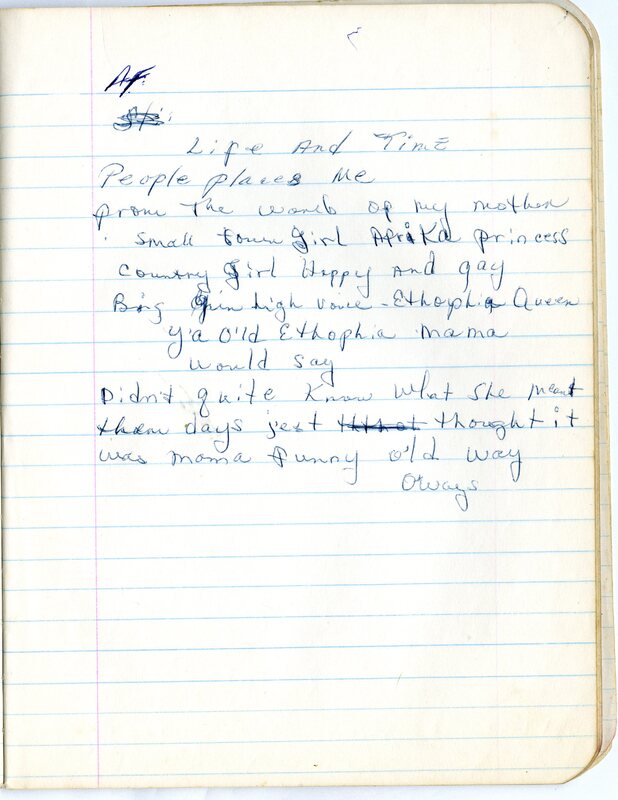 Af.
Life And Time
People places Me
from The womb of my mother
Small town Girl Afrika princess
Country Girl Happy And gay
Big Grin high voice - Ethophia Queen
Y'a O'ld Ethophia Mama
would say
Didn't quite Know What She meant
them days jest thought it
was mama funny o'ld way
Oways